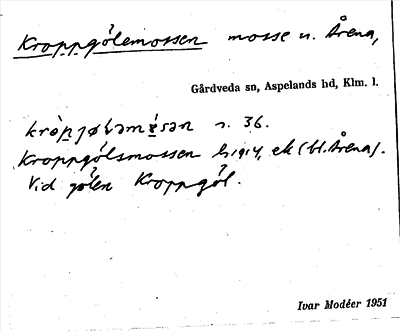 Kroppgölemossen mosse n. Årena,
Gårdveda sn, Aspelands hd, Klm. l.
s. 36.
Kroppgölsmossen ek (bl. Årena).
Vid gölen Kroppgöl.
Ivar Modéer 1951